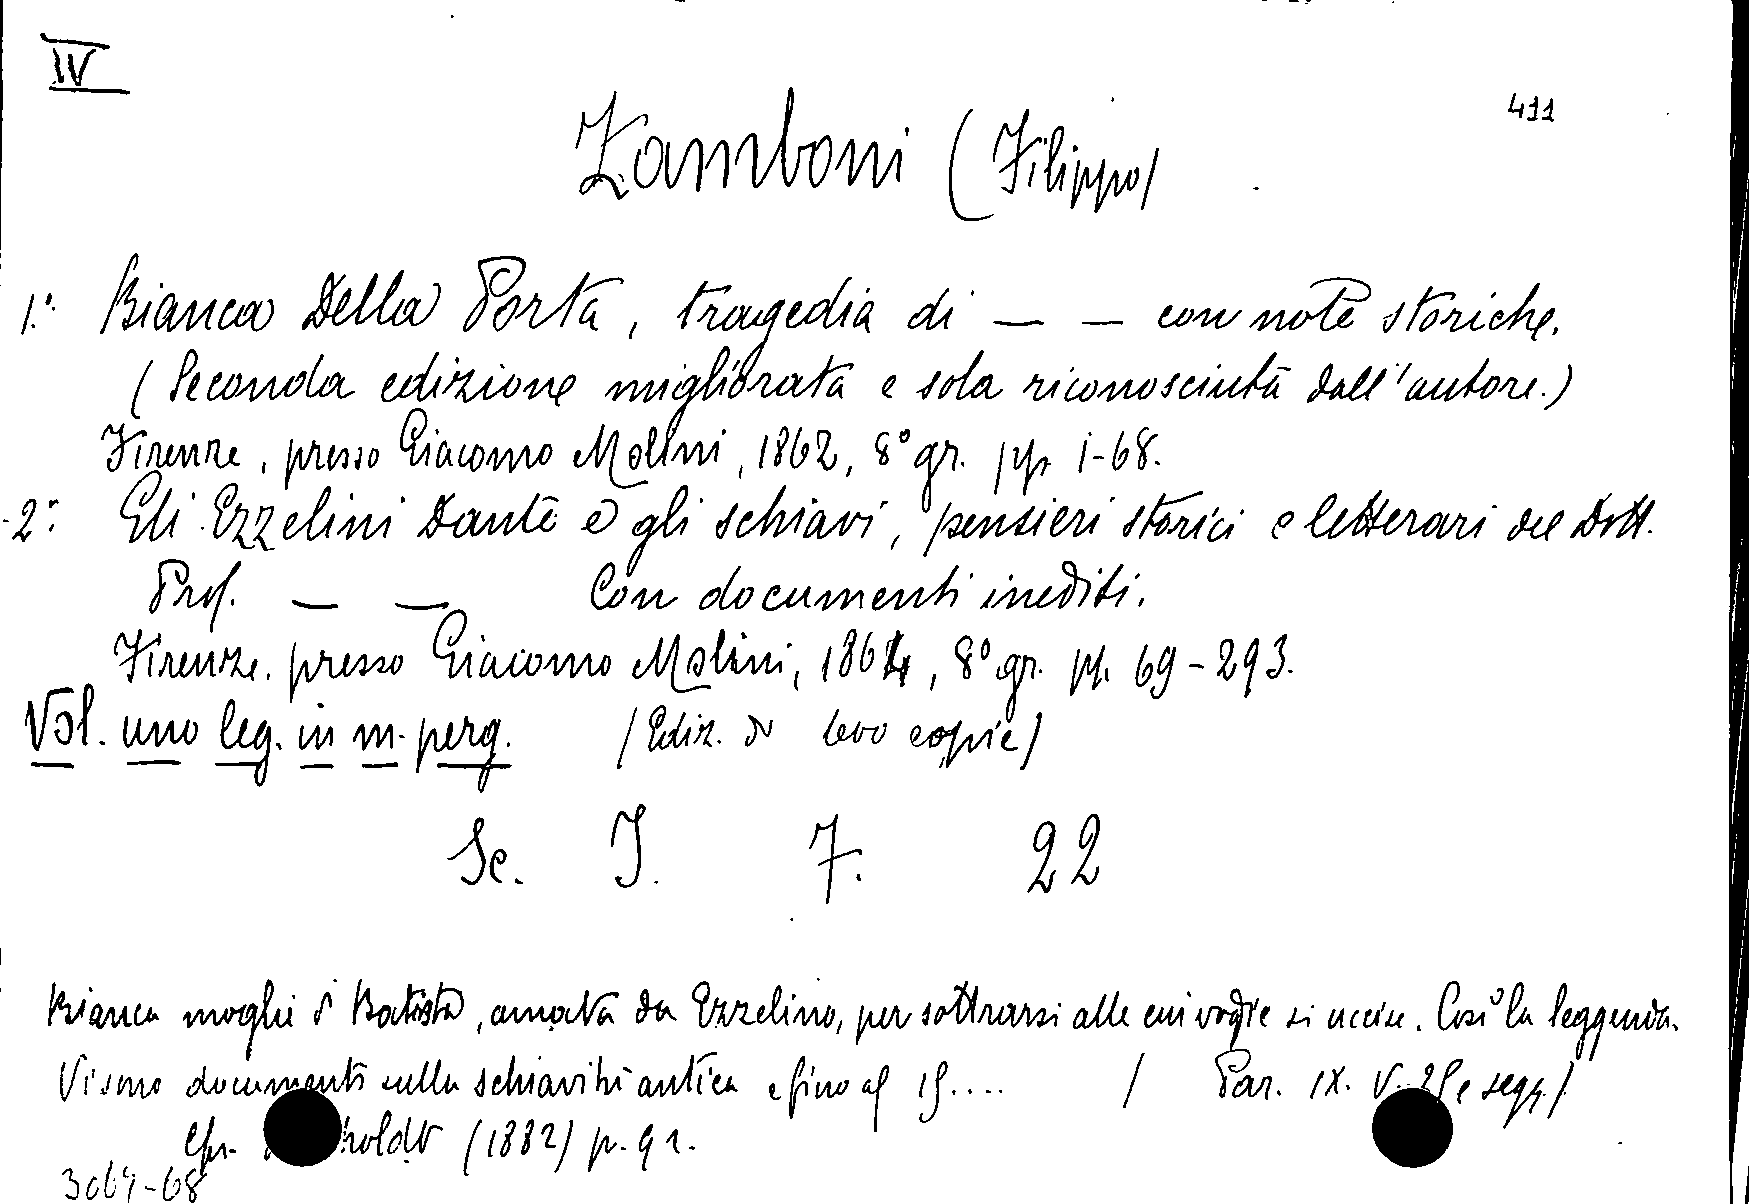 IV
411
Zamboni (Filippo)
1.° Bianca Della Porta, tragedia di — — con note storiche.
(Seconda edizione migliorata e sola riconosciuta dall'autore.)
Firenze, presso Giacomo Molini, 1862, 8° gr. pp. 1-68.
2.° Gli Ezzelini Dante e gli schiavi, pensieri storici e letterari del Dott.
Prof. — — Con documenti inediti.
Firenze. presso Giacomo Molini, 1864, 8° gr. pp. 69-293.
Vol. uno leg. in m. perg. (Ediz. di copie)
Sc. I. 7. 22
Bianca moglie di Batista, amata da Ezzelino, per sottrarsi alle cui voglie si uccise. Così la leggenda.
Vi sono documenti sulla schiavitù antica e fino al (Par. IX. v. e segg.)
Cfr. (1882) p. 91.
3064-68